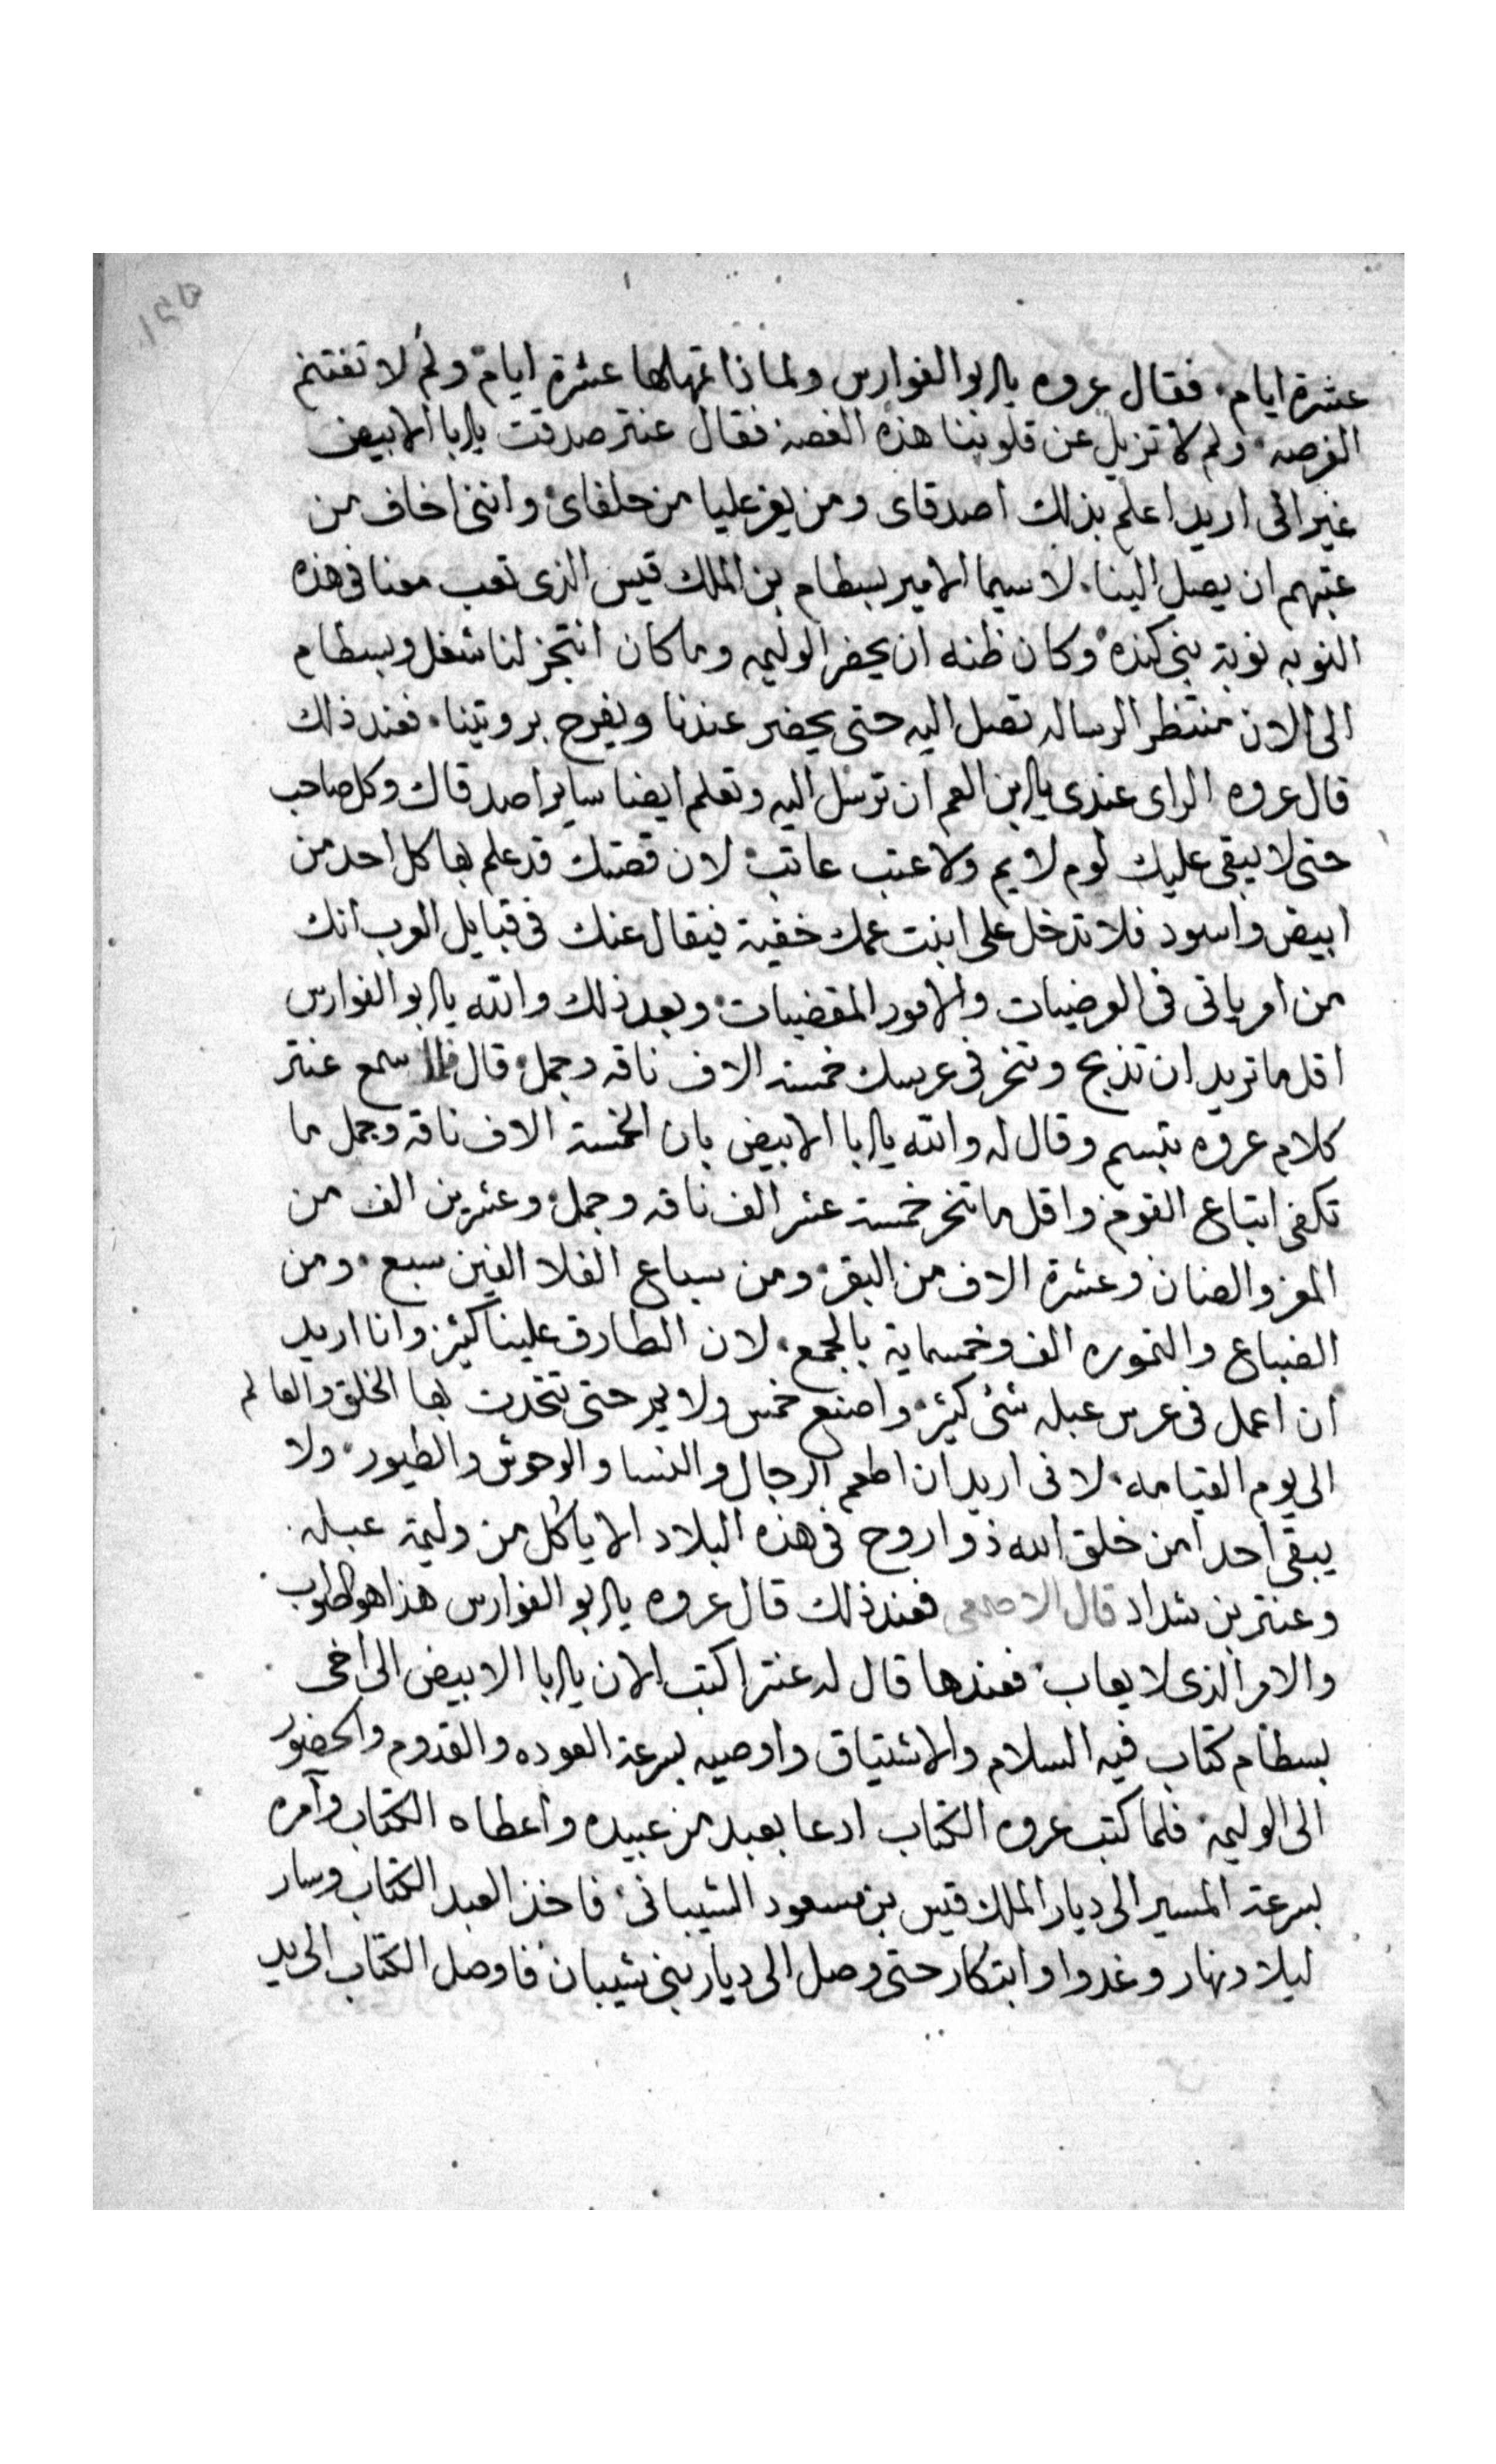 عشرة ايام. فقال عروه يا ابو الفوارس ولماذا تمهلها عشرة ايام ولم لا تغتنم
الفرصه. ولم لا تزيل عن قلوبنا هذه الغصة فقال عنتر صدقت يا ابا الابيض
غير اني اريد اعلم بذلك اصدقاى ومن يعز عليا من حلفاى وانني اخاف من
عتبهم ان يصل الينا. لا سيما الامير بسطام بن الملك قيس الذى تعب معنا فى هذه
النوبه نوبة بني كنده وكان ظنه ان يحضر الوليمه وما كان انتجز لنا شغل وبسطام
الى الان منتظر الرساله تصل اليه حتى يحضر عندنا ويفرح برويتنا. فعند ذلك
قال عروه الراى عندى يا ابن العم ان ترسل اليه وتعلم ايضا ساير اصدقاك وكل صاحب
حتى لا يبقى عليك لوم لايم ولا عتب عاتب لان قصتك قد علم بها كل احد من
ابيض واسود فلا تدخل على ابنت عمك خفية فيقال عنك فى قبايل العرب انك
من امر ياتى فى الوضيات والامور المقضيات وبعد ذلك والله يا ابو الفوارس
اقل ما تريد ان تذبح وتنحر فى عرسك خمسة الاف ناقه وجمل قال فلما سمع عنتر
كلام عروه تبسم وقال له والله يا ابا الابيض بان الخمسة الاف ناقه وجمل ما
تكفى اتباع القوم واقل ما تنحر خمسة عشر الف ناقه وجمل وعشرين الف من
المعز والضان وعشرة الاف من البقر ومن سباع الفلا الفين سبع. ومن
الضباع والنموره الف وخمسماية بالجمع. لان الطارق علينا كثير وانا اريد
ان اعمل فى عرس عبله شئ كثير واصنع خمس ولايم حتى تتحدث بها الخلق والعالم
الى يوم القيامه. لانى اريد ان اطعم الرجال والنسا والوحوش والطيور. ولا
يبقى احدا من خلق الله ذو اروح فى هذه البلاد الا ياكل من وليمة عبله.
وعنتر بن شداد قال الاصمعى فعند ذلك قال عروه يا ابو الفوارس هذا هو الصواب
والامر الذى لا يعاب فعندها قال له عنتر اكتب الان يا ابا الابيض الى اخى
بسطام كتاب فيه السلام والاشتياق واوصيه بسرعة العوده والقدوم والحضور
الى الوليمة فلما كتب عروه الكتاب ادعا بعبد من عبيده واعطاه الكتاب وآمره
بسرعة المسير الى ديار الملك قيس بن مسعود الشيبانى فاخذ العبد الكتاب وسار
ليلا ونهار وغدوا وابتكار حتى وصل الى ديار بني شيبان فاوصل الكتاب الى يد